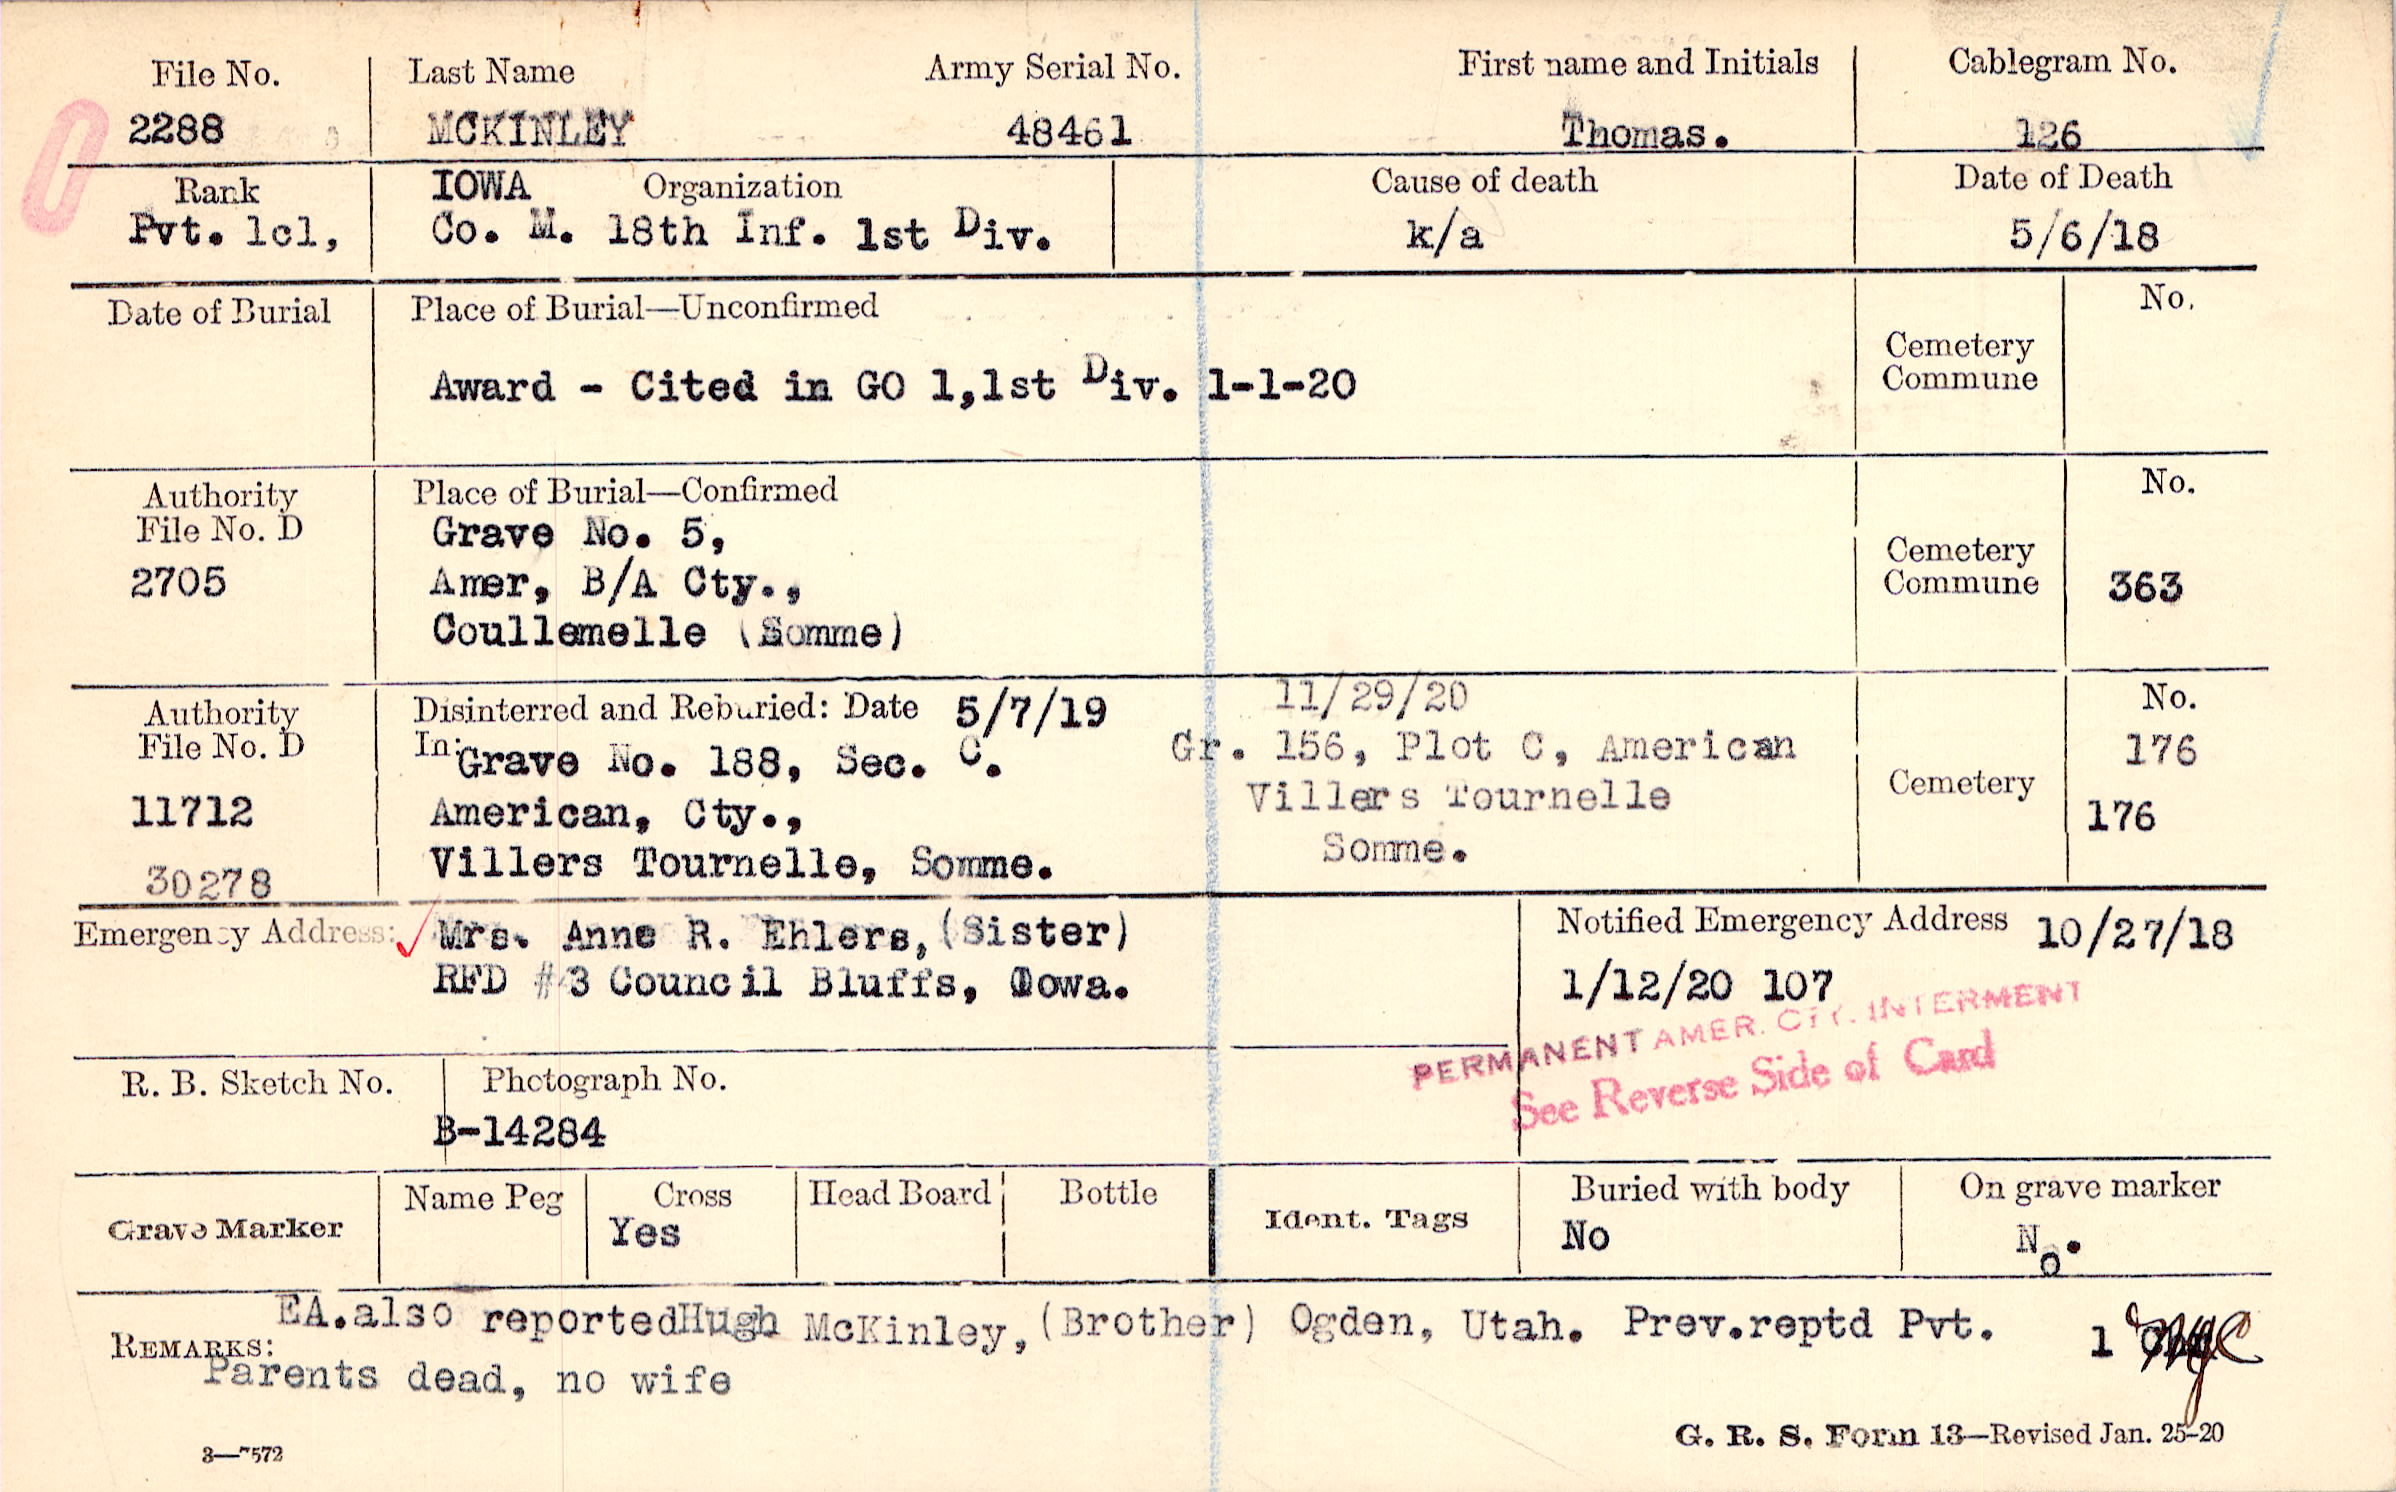 File No. Last Name Army Serial No. First name and Initials Cablegram No.
2288 MCKINLEY 48461 Thomas. 126
Rank IOWA Organization Cause of death Date of Death
Pvt. 1cl, Co. M. 18th Inf. 1st Div. k/a 5/6/18
Date of Burial Place of Burial—Unconfirmed No.
Cemetery
Commune
Award - Cited in GO 1,1st Div. 1-1-20
Authority Place of Burial—Confirmed No.
File No. D Grave No. 5,
Cemetery
2705 Amer, B/A Cty., Commune 363
Coullemelle (Somme)
Authority Disinterred and Reburied: Date 5/7/19 11/29/20 No.
File No. D In: Grave No. 188, Sec. C. Gr. 156, Plot C, American 176
Cemetery
11712 American, Cty., Villers Tournelle 176
30278 Villers Tournelle, Somme. Somme.
Emergency Address: Mrs. Anne R. Ehlers, (Sister) Notified Emergency Address 10/27/18
RFD #3 Council Bluffs, Iowa. 1/12/20 107
PERMANENT AMER. CTY. INTERMENT
See Reverse Side of Card
R. B. Sketch No. Photograph No.
B-14284
Name Peg Cross Head Board Bottle Buried with body On grave marker
Grave Marker Yes Ident. Tags No No.
EA.also reportedHugh McKinley, (Brother) Ogden, Utah. Prev.reptd Pvt. 1
REMARKS:
Parents dead, no wife
3—7572 G. R. S. Form 13—Revised Jan. 25-20